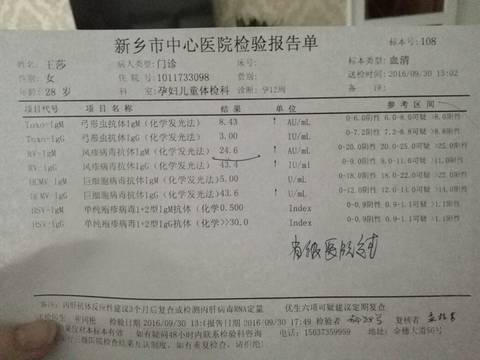 新乡市中心医院检验报告单
标本号：108
姓名：王莎 病人类型：门诊 床号： 标本类型：血清
性别：女 住院号：1011733098 费别： 送检时间：2016/09/30 13:02
年龄：28岁 科室：孕妇儿童体检科 诊断：孕12周 备注：
项目代号 项目名称 结果 单位 参考区间
Toxo-IgM 弓形虫抗体IgM(化学发光法) 8.43 ↑ AU/mL 0-6.0阴性 6.0-8.0可疑 >8.0阳性
Toxo-IgG 弓形虫抗体IgG(化学发光法) 3.00 IU/mL 0-7.2阴性 7.2-8.8可疑 >8.8阳性
RV-IgM 风疹病毒抗体IgM(化学发光法) 24.6 ↑ AU/mL 0-20.0阴性 20.0-25.0可疑 >25.0阳性
RV-IgG 风疹病毒抗体IgG(化学发光法) 43.4 ↑ IU/ml 0-9.0阴性 9.0-11.0可疑 >11.0阳性
HCMV-IgM 巨细胞病毒抗体IgM(化学发光法) 5.00 U/mL 0-18.0阴性 18.0-22.0可疑 >22.0阳性
HCMV-IgG 巨细胞病毒抗体IgG(化学发光法) 43.6 ↑ U/mL 0-12.0阴性 12.0-14.0可疑 >14.0阳性
HSV-IgM 单纯疱疹病毒1+2型IgM抗体(化学 0.500 Index 0-0.9阴性 0.9-1.1可疑 >1.1阳性
HSV-IgG 单纯疱疹病毒1+2型IgG抗体(化学 >30.0 ↑ Index 0-0.9阴性 0.9-1.1可疑 >1.1阳性
省级医院
备注：丙肝抗体反应性建议3个月后复合或检测丙肝病毒RNA定量 优生六项可疑建议定期复合
送检医生 检验日期 2016/09/30 13: 报告日期 2016/09/30 17:49 检验者 复核者
仅对本标本有效 如有疑问48小时内联系检验科咨询 电话：15637359959 地址：金穗大道56号
医院检查结果互认制度，如有重复检查，请拒绝!